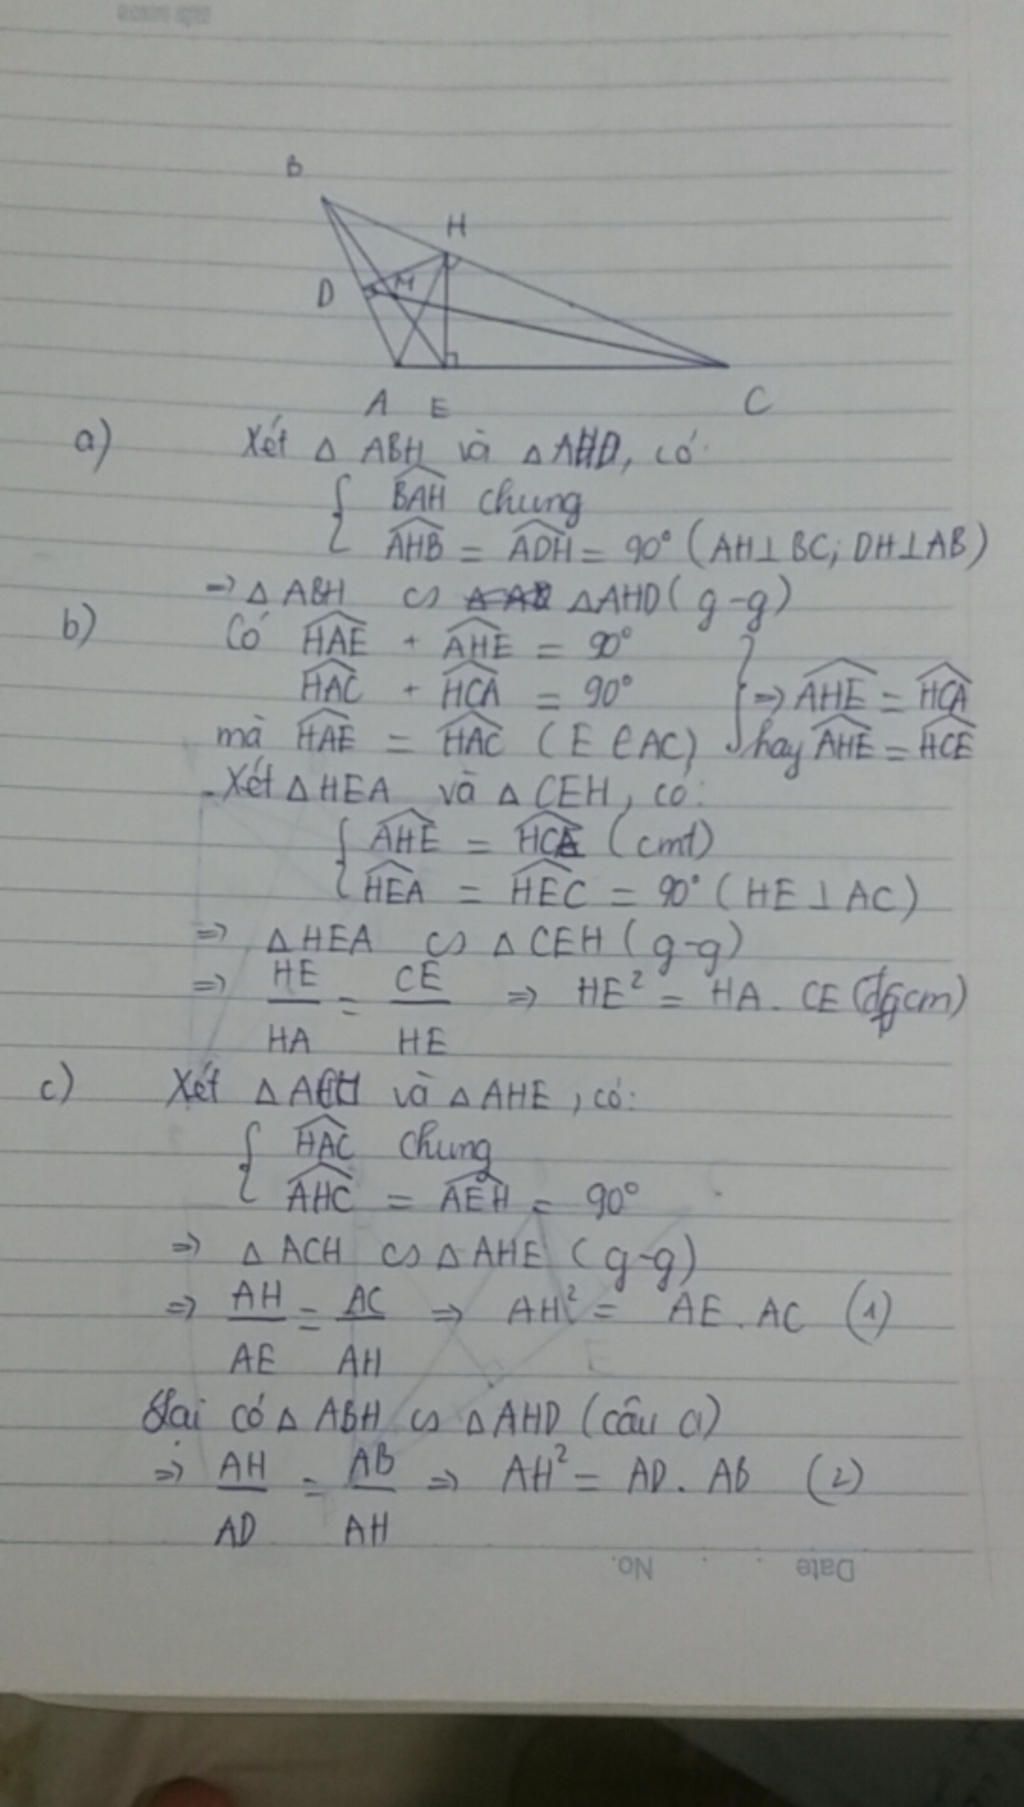 B
H
D
M
A E
C
a) Xét △ ABH và △ AHD, có:
BAH chung
AHB = ADH = 90° (AH⊥BC; DH⊥AB)
=> △ ABH ∽ △AHD (g-g)
b) Có HAE + AHE = 90°
HAC + HCA = 90° => AHE = HCA
mà HAE = HAC (E ∈ AC) hay AHE = HCE
Xét △HEA và △ CEH, có:
AHE = HCE (cmt)
HEA = HEC = 90° (HE ⊥ AC)
=> △HEA ∽ △ CEH (g-g)
=> HE/HA = CE/HE => HE² = HA . CE (đpcm)
c) Xét △ ACH và △ AHE, có:
HAC chung
AHC = AEH = 90°
=> △ ACH ∽ △ AHE (g-g)
=> AH/AE = AC/AH => AH² = AE . AC (1)
Lại có △ ABH ∽ △AHD (câu a)
=> AH/AD = AB/AH => AH² = AD . AB (2)
No.
Date